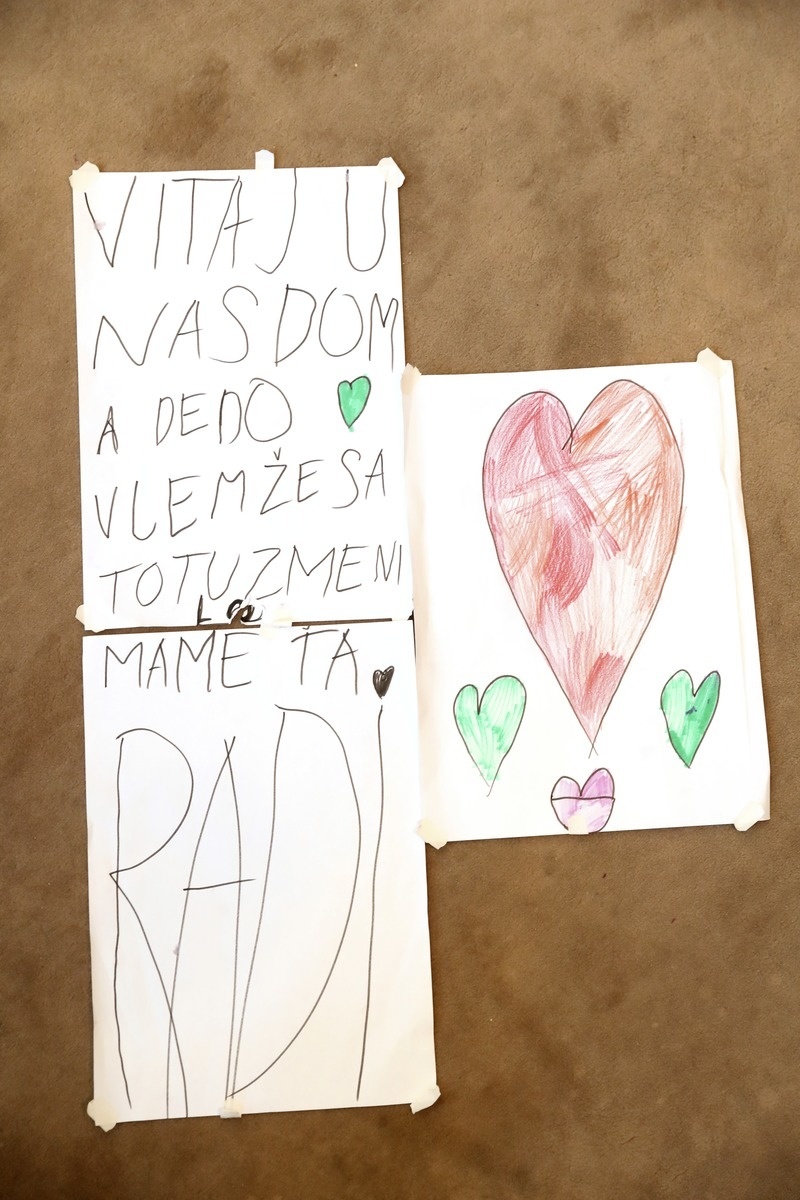 VITAJ U
NAS DOM
A DEDO
VLEMŽESA
TOTUZMENI
MAME ŤA
RADI